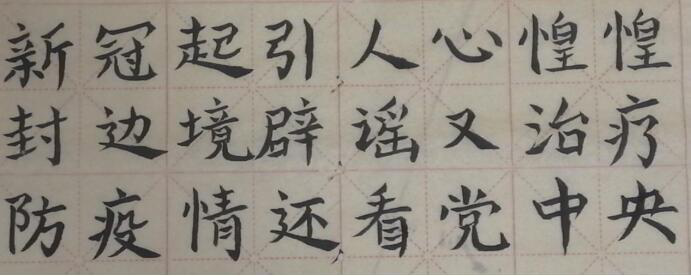 新冠起引人心惶惶
封边境辟谣又治疗
防疫情还看党中央